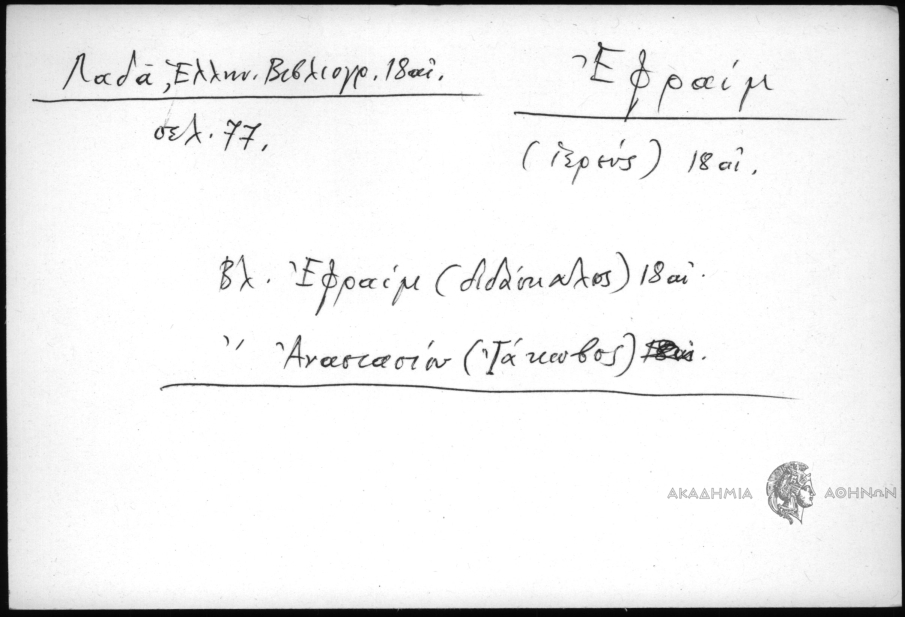 Λαδᾶ, Ἑλλην. Βιβλιογρ. 18 αἰ.
σελ. 77.
Ἐφραίμ
(ἱερεύς) 18 αἰ.
Βλ. Ἐφραίμ (διδάσκαλος) 18 αἰ.
〃 Ἀναστασίου (Ἰάκωβος)
ΑΚΑΔΗΜΙΑ ΑΘΗΝΩΝ